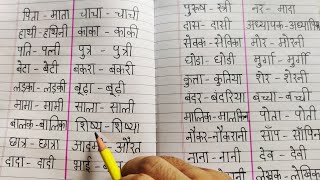 पिता - माता चाचा - चाची
हाथी - हथिनी काका - काकी
पति - पत्नी पुत्र - पुत्री
बेटा - बेटी बकरा - बकरी
लड़का - लड़की बूढ़ा - बूढ़ी
मामा - मामी साला - साली
बालक - बालिका शिष्य - शिष्या
छात्र - छात्रा औरत
दादा - दादी भाई -
पुरुष - स्त्री नर - मादा
दास - दासी अध्यापक - अध्यापिका
सेवक - सेविका मोर - मोरनी
घोड़ा - घोड़ी मुर्गा - मुर्गी
कुत्ता - कुतिया शेर - शेरनी
बंदर - बंदरिया बच्चा - बच्ची
मालिक - मालकिन पोता - पोती
नौकर - नौकरानी साँप - साँपिन
नाना - नानी देव - देवी
लेखक - लेखिका